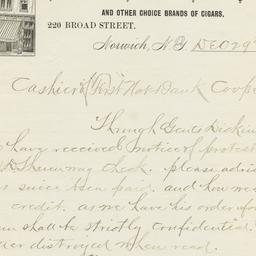 AND OTHER CHOICE BRANDS OF CIGARS,
220 BROAD STREET.
Norwich, N.Y. DEC 29
Cashier of First Nat Bank Coope
Through Gents
have received notice of protest
check. please advis
since been paid. and how
credit. as we have his order for
shall be strictly confidential.
distroyed when read.